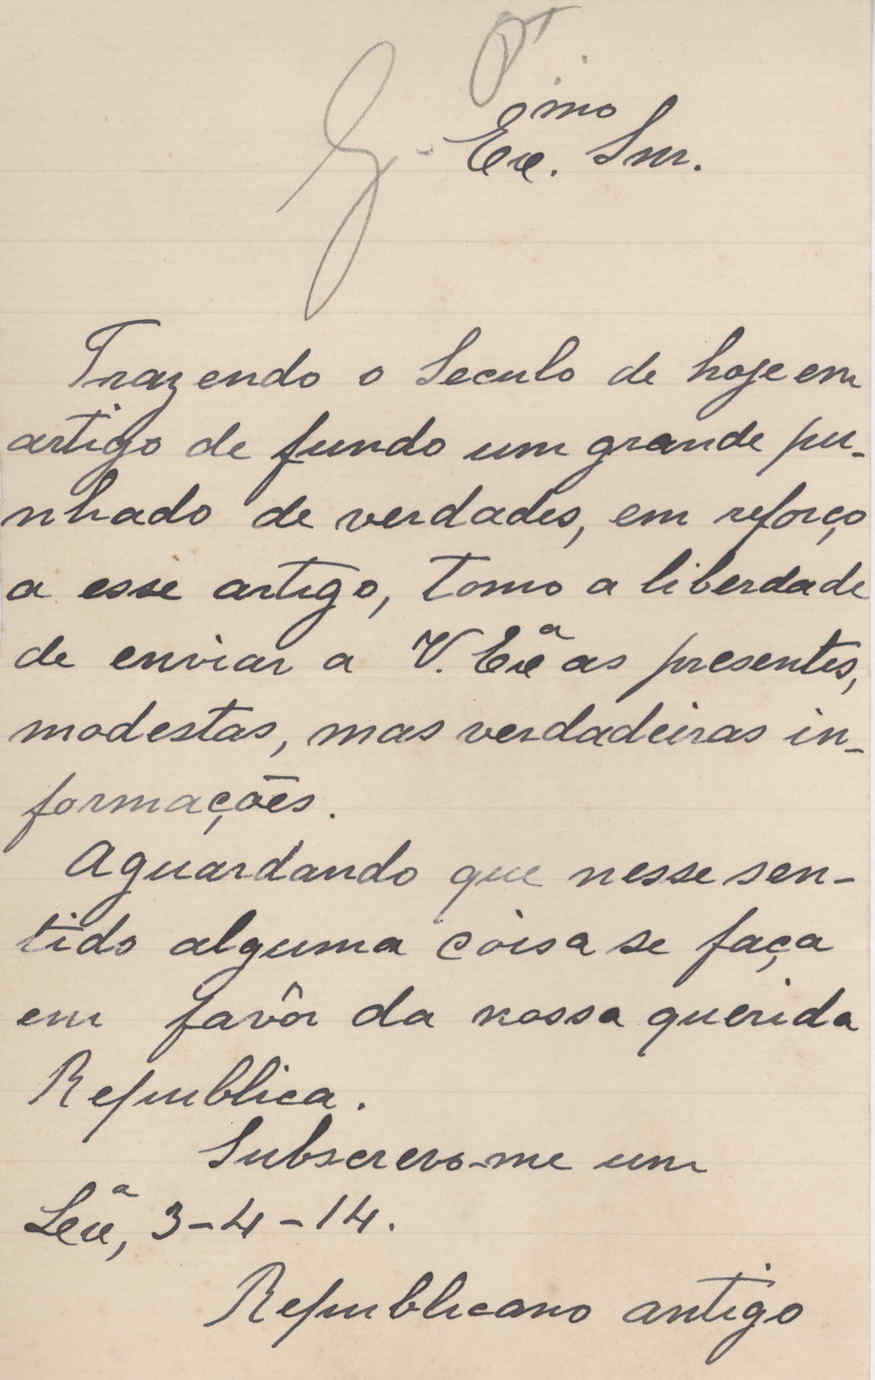 Exmo. Snr.
Trazendo o Seculo de hoje em
artigo de fundo um grande pu-
nhado de verdades, em reforço
a esse artigo, tomo a liberdade
de enviar a V. Exª as presentes,
modestas, mas verdadeiras in-
formações.
Aguardando que nesse sen-
tido alguma coisa se faça
em favôr da nossa querida
Republica.
Subscrevo-me um
Lxª, 3-4-14.
Republicano antigo